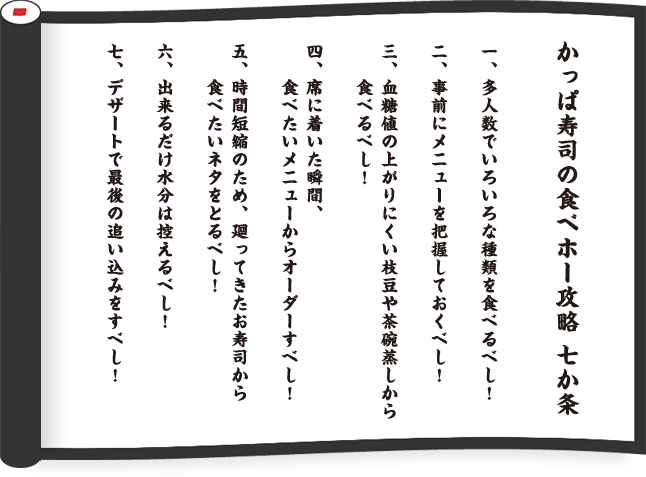 かっぱ寿司の食べホー攻略 七か条
一、多人数でいろいろな種類を食べるべし！
二、事前にメニューを把握しておくべし！
三、血糖値の上がりにくい枝豆や茶碗蒸しから
食べるべし！
四、席に着いた瞬間、
食べたいメニューからオーダーすべし！
五、時間短縮のため、廻ってきたお寿司から
食べたいネタをとるべし！
六、出来るだけ水分は控えるべし！
七、デザートで最後の追い込みをすべし！